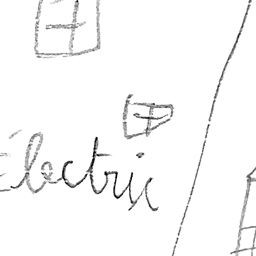 Électric